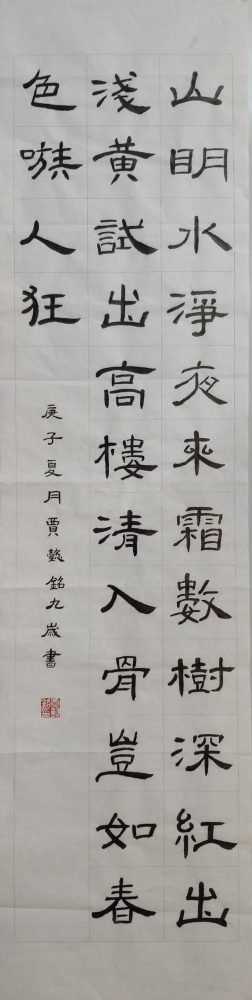 山明水淨夜來霜數樹深紅出
淺黃試出高樓清入骨豈如春
色嗾人狂
庚子夏月賈懿銘九歲書